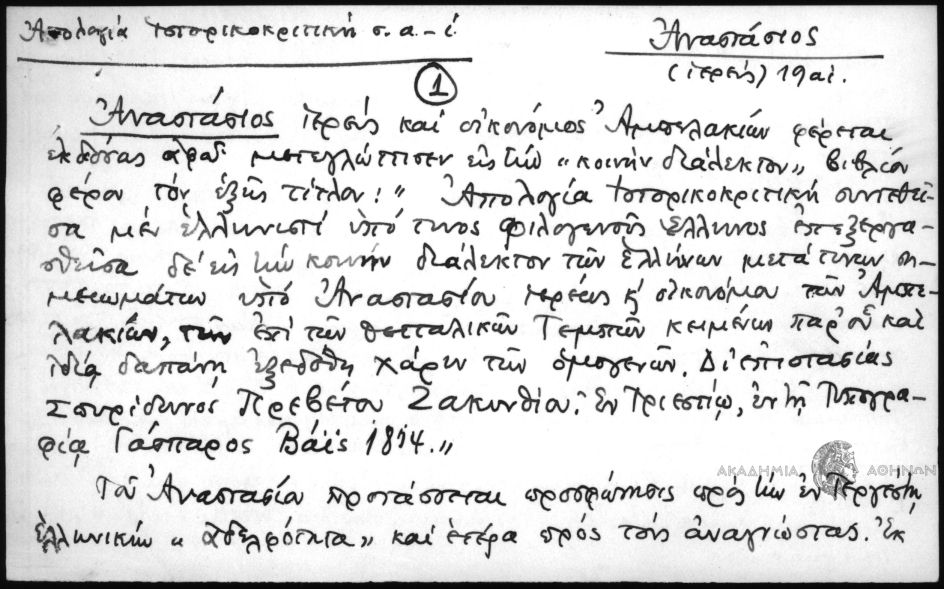 Ἀπολογία ἱστορικοκριτική σ. α - ί.
Ἀναστάσιος
(ἱερεύς) 19 αἰ.
1
Ἀναστάσιος ἱερεύς καί οἰκονόμος Ἀμπελακιών φέρεται
ἐκδούς ἅμα μεταγλώττισεν εἰς τήν «κοινήν διάλεκτον» βιβλίον
φέρον τόν ἑξῆς τίτλον: " Ἀπολογία ἱστορικοκριτική συντεθεῖ-
σα μέν ἑλληνιστί ὑπό τινος φιλογενοῦς Ἕλληνος ἐπεξεργα-
σθεῖσα δέ εἰς τήν κοινήν διάλεκτον τῶν Ἑλλήνων μετά τινων ση-
μειωμάτων ὑπό Ἀναστασίου ἱερέως κ' οἰκονόμου τῶν Ἀμπε-
λακιῶν, τῶν ἐπί τῶν Θετταλικῶν Τεμπῶν κειμένων παρ' οὗ καί
ἰδίᾳ δαπάνῃ ἐξεδόθη χάριν τῶν ὁμογενῶν. Δι' ἐπιστασίας
Σπυρίδωνος Πρεβέτου Ζακυνθίου. Ἐν Τριεστίῳ, ἐν τῇ Τυπογρα-
φίᾳ Γάσπαρος Βάϊς 1814.„
ΑΚΑΔΗΜΙΑ ΑΘΗΝΩΝ
Τοῦ Ἀναστασίου προτάσσεται προσφώνησις πρός τήν ἐν Τεργέστῃ
Ἑλληνικήν « ἀδελφότητα » καί ἑτέρα πρός τούς ἀναγνώστας. Ἐκ